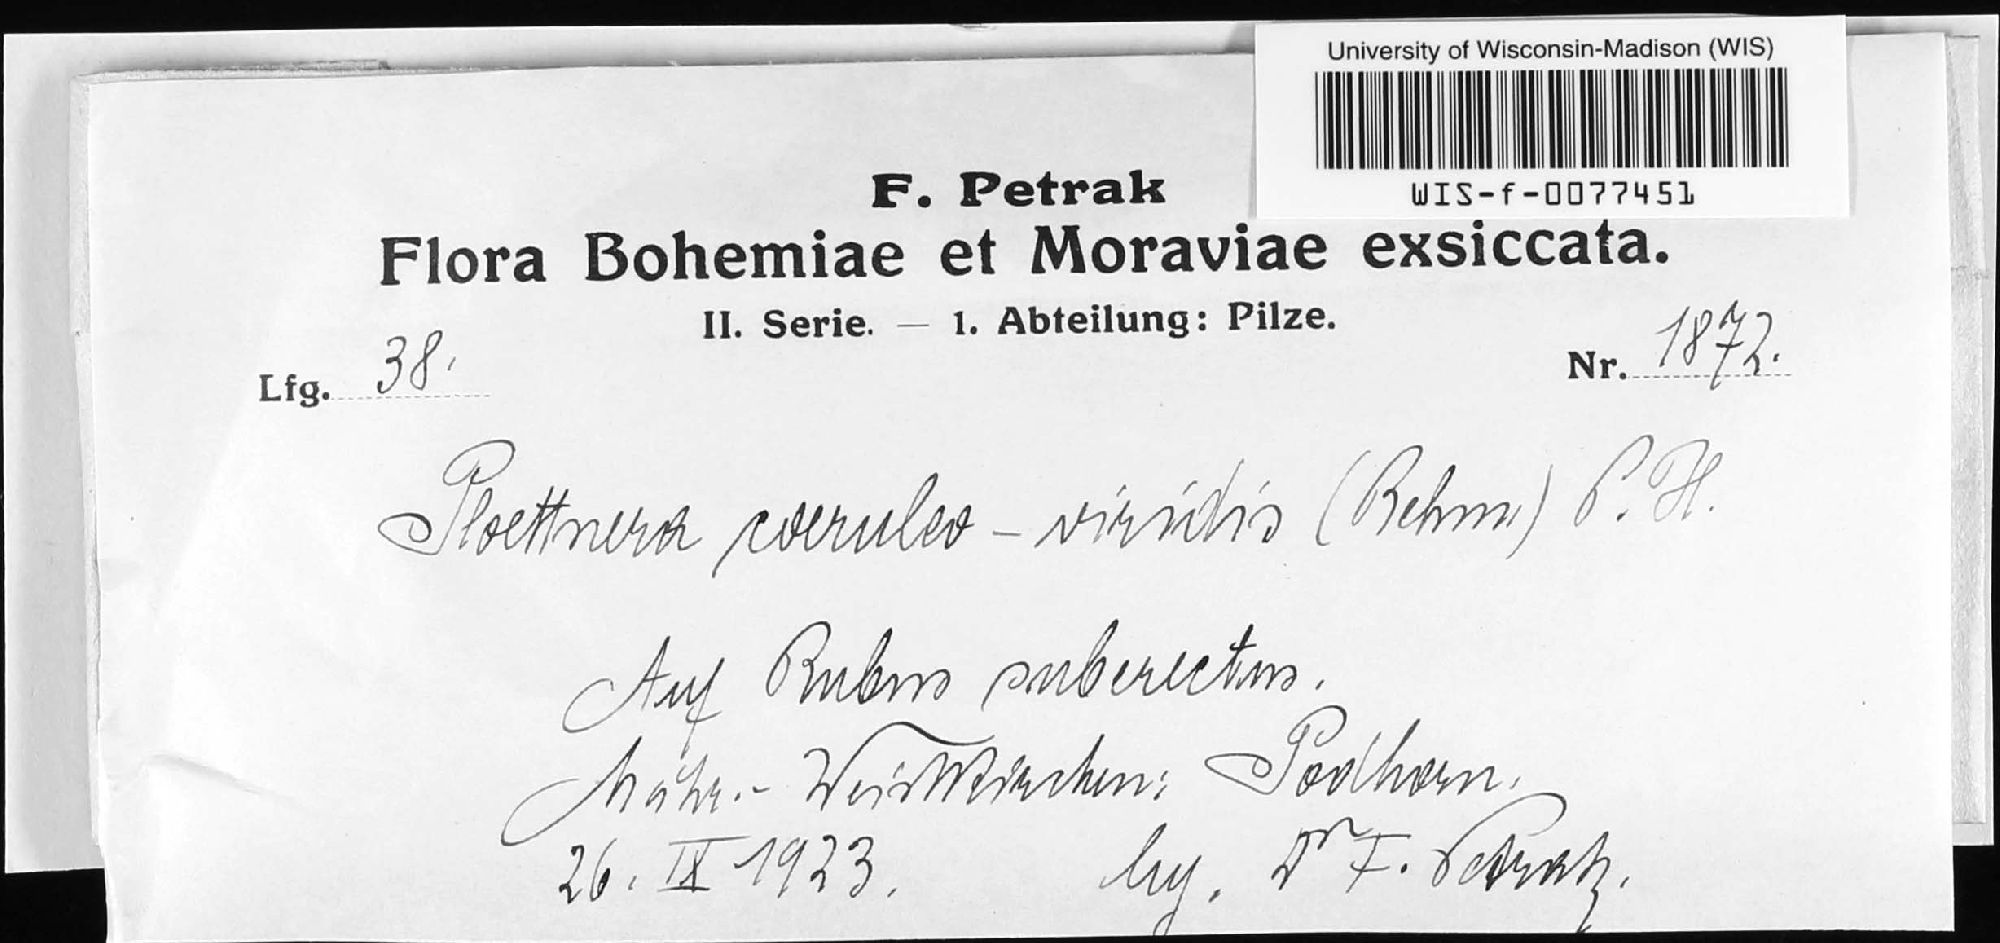 University of Wisconsin-Madison (WIS)
WIS-f-0077451
F. Petrak
Flora Bohemiae et Moraviae exsiccata.
II. Serie. — 1. Abteilung: Pilze.
Lfg. 38.
Nr. 1872.
Ploettnera coeruleo-viridis (Rehm) P. H.
Auf Rubus suberectus.
Mähr.-Weisskirchen: Podhorn.
26. IX 1923.
leg. Dr F. Petrak.